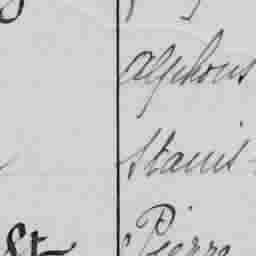 Alphons
Stanis-
St Pierre